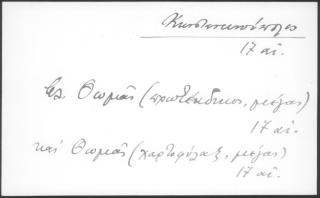 Κωνσταντινούπολις
17 αἰ.
βλ. Θωμᾶς (πρωτέκδικος, μέγας)
17 αἰ.
καὶ Θωμᾶς (χαρτοφύλαξ, μέγας)
17 αἰ.